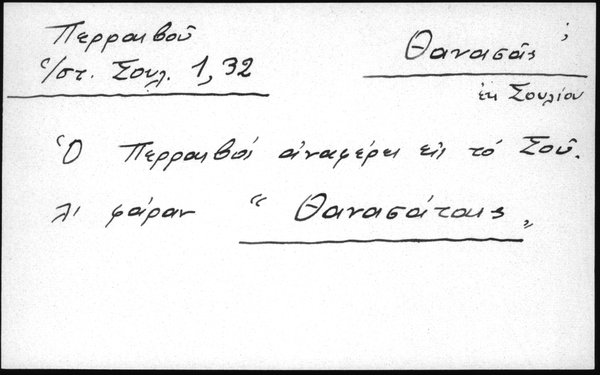 Περραιβοῦ
Ἱστ. Σουλ. 1, 32
Θανασᾶς ;
ἐκ Σουλίου
Ὁ Περραιβός ἀναφέρει εἰς τό Σοῦ.
λι φάραν " Θανασάταις „